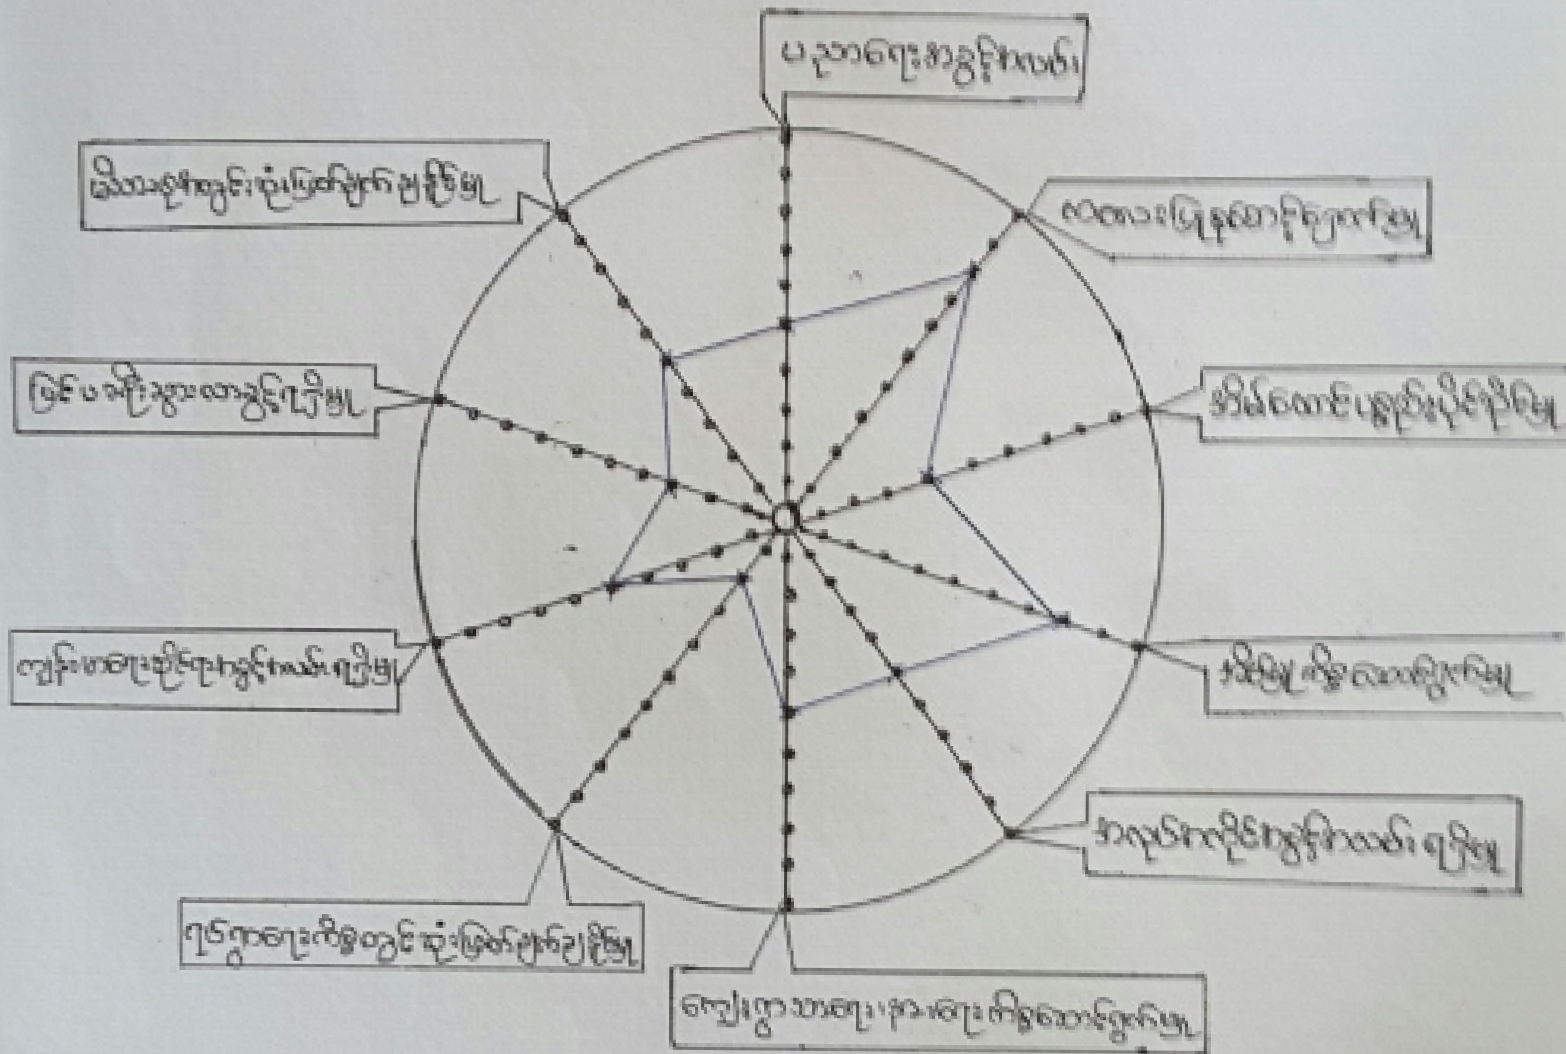 ပညာရေးအခွင့်အလမ်း
ကလေးပြုစုစောင့်ရှောက်မှု
အိမ်ထောင်ပစ္စည်းပိုင်ဆိုင်မှု
အိမ်မှုကိစ္စဆောင်ရွက်မှု
အလုပ်အကိုင်အခွင့်အလမ်း ရရှိမှု
ကျေးရွာသာရေး၊နာရေးကိစ္စဆောင်ရွက်မှု
ရပ်ရွာရေးကိစ္စတွင်ဆုံးဖြတ်ချက်ချနိုင်မှု
ကျန်းမာရေးဆိုင်ရာအခွင့်အလမ်းရရှိမှု
ပြင်ပသို့သွားလာခွင့်ရရှိမှု
မိသားစုအတွင်းဆုံးဖြတ်ချက်ချနိုင်မှု